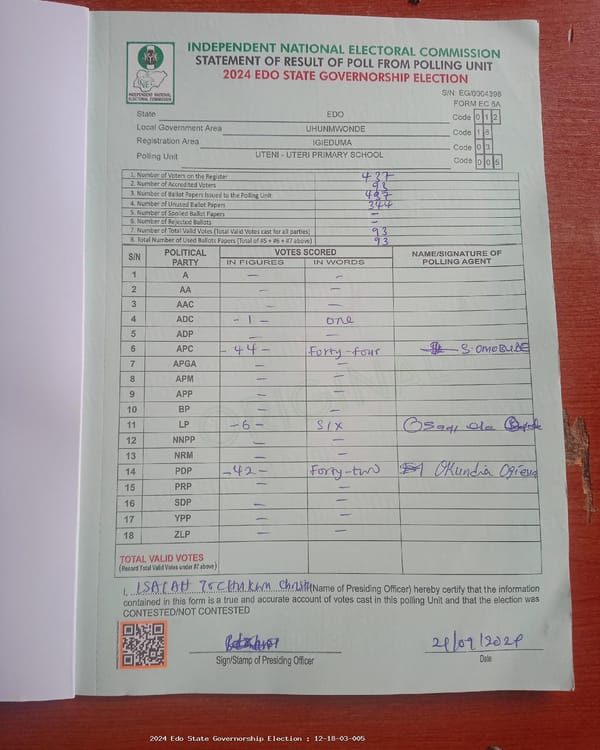 INDEPENDENT NATIONAL ELECTORAL COMMISSION
STATEMENT OF RESULT OF POLL FROM POLLING UNIT
2024 EDO STATE GOVERNORSHIP ELECTION
INDEPENDENT NATIONAL
ELECTORAL COMMISSION
S/N: EG/0004398
FORM EC 8A
State EDO Code 0 1 2
Local Government Area UHUNMWONDE Code 1 8
Registration Area IGIEDUMA Code 0 3
Polling Unit UTENI - UTERI PRIMARY SCHOOL Code 0 0 5
1. Number of Voters on the Register 437
2. Number of Accredited Voters 93
3. Number of Ballot Papers Issued to the Polling Unit 437
4. Number of Unused Ballot Papers 344
5. Number of Spoiled Ballot Papers –
6. Number of Rejected Ballots –
7. Number of Total Valid Votes (Total Valid Votes cast for all parties) 93
8. Total Number of Used Ballots Papers (Total of #5 + #6 + #7 above) 93
S/N POLITICAL PARTY VOTES SCORED NAME/SIGNATURE OF POLLING AGENT
IN FIGURES IN WORDS
1 A – –
2 AA – –
3 AAC – –
4 ADC -1- one
5 ADP – –
6 APC -44- forty-four S. OMOBUDE
7 APGA – –
8 APM – –
9 APP – –
10 BP – –
11 LP -6- SIX
12 NNPP – –
13 NRM – –
14 PDP -42- forty-two Okundia
15 PRP – –
16 SDP – –
17 YPP – –
18 ZLP – –
TOTAL VALID VOTES
(Record Total Valid Votes under #7 above)
I, ISAIAH Christy (Name of Presiding Officer) hereby certify that the information
contained in this form is a true and accurate account of votes cast in this polling Unit and that the election was
CONTESTED/NOT CONTESTED
21/09/2024
Sign/Stamp of Presiding Officer Date
2024 Edo State Governorship Election : 12-18-03-005